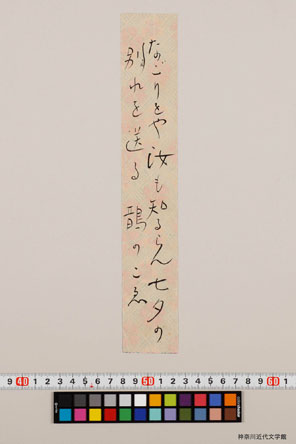 なごりをや汝も知るらん七夕の
別れを送る鵲のこゑ
9 40 1 2 3 4 5 6 7 8 9 50 1 2 3 4 5 6 7 8 9 60 1
神奈川近代文学館